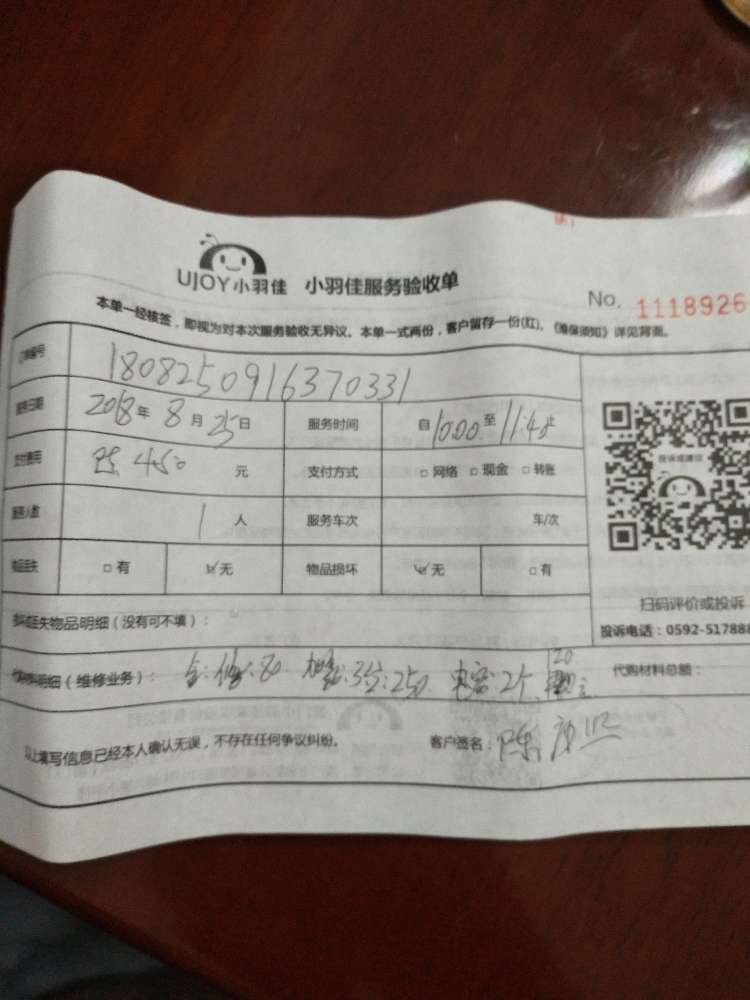 UJOY小羽佳 小羽佳服务验收单
No. 1118926
本单一经核签，即视为对本次服务验收无异议。本单一式两份，客户留存一份(红)。《维保须知》详见背面。
订单编号 1808250916370331
服务日期 2018年 8月 25日 服务时间 自10:00至11:45止
支付费用 450 元 支付方式 □网络 □现金 □转账
服务人数 1 人 服务车次 车/次
物品丢失 □有 ☑无 物品损坏 ☑无 □有
投诉或建议
扫码评价或投诉
投诉电话：0592-517888
损坏丢失物品明细（没有可不填）：
代购材料明细（维修业务）： :80 :250 电容:2个 120
代购材料总额：
以上填写信息已经本人确认无误，不存在任何争议纠纷。 客户签名：陈